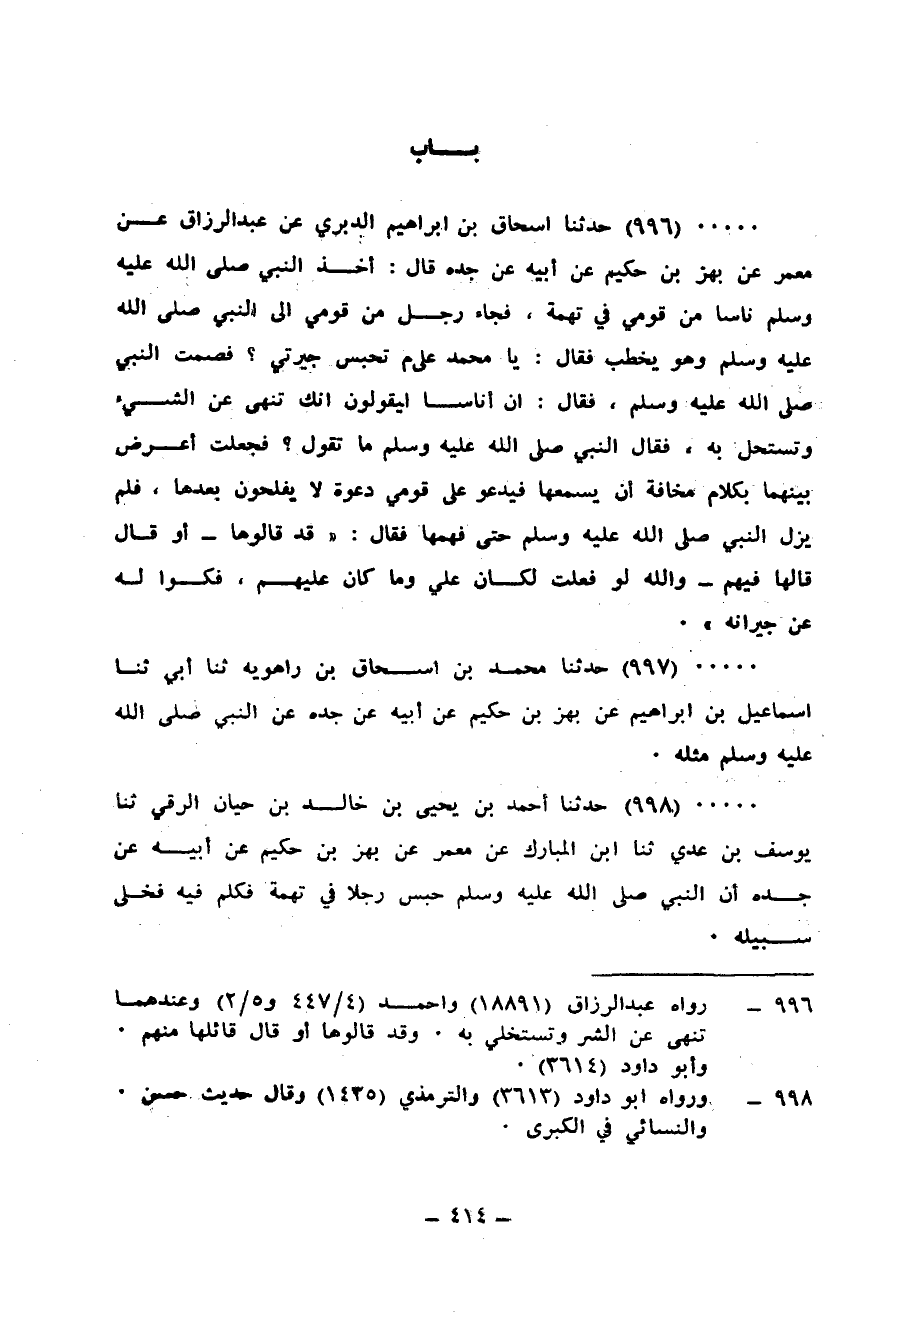 باب
٠٠٠٠٠ (٩٩٦) حدثنا اسحاق بن ابراهيم الدبري عن عبدالرزاق عن
معمر عن بهز بن حكيم عن أبيه عن جده قال : أخذ النبي صلى الله عليه
وسلم ناسا من قومي في تهمة ، فجاء رجل من قومي الى النبي صلى الله
عليه وسلم وهو يخطب فقال : يا محمد علىم تحبس جيرتي ؟ فصمت النبي
صلى الله عليه وسلم ، فقال : ان أناسا ايقولون انك تنهى عن الشيء
وتستحل به ، فقال النبي صلى الله عليه وسلم ما تقول ؟ فجعلت أعرض
بينهما بكلام مخافة أن يسمعها فيدعو على قومي دعوة لا يفلحون بعدها ، فلم
يزل النبي صلى الله عليه وسلم حتى فهمها فقال : « قد قالوها – أو قال
قالها فيهم – والله لو فعلت لكان علي وما كان عليهم ، فكوا له
عن جيرانه » ٠
٠٠٠٠٠ (٩٩٧) حدثنا محمد بن اسحاق بن راهويه ثنا أبي ثنا
اسماعيل بن ابراهيم عن بهز بن حكيم عن أبيه عن جده عن النبي صلى الله
عليه وسلم مثله ٠
٠٠٠٠٠ (٩٩٨) حدثنا أحمد بن يحيى بن خالد بن حيان الرقي ثنا
يوسف بن عدي ثنا ابن المبارك عن معمر عن بهز بن حكيم عن أبيه عن
جده أن النبي صلى الله عليه وسلم حبس رجلا في تهمة فكلم فيه فخلى
سبيله ٠
٩٩٦ – رواه عبدالرزاق (١٨٨٩١) واحمد (٤٤٧/٤ و٢/٥) وعندهما
تنهى عن الشر وتستخلي به ٠ وقد قالوها أو قال قائلها منهم ٠
وأبو داود (٣٦١٤) ٠
٩٩٨ – ورواه ابو داود (٣٦١٣) والترمذي (١٤٣٥) وقال حديث حسن ٠
والنسائي في الكبرى ٠
– ٤١٤ –